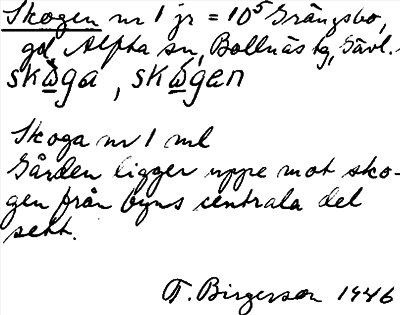 Skogen nr 1 jr = 10⁵ Grängsbo,
gd, Alfta sn, Bollnäs tg, Gävl.
skω̲ga, skω̲gen
Skoga nr 1 ml
Gården ligger uppe mot sko-
gen från byns centrala del
sett.
F. Birgerson 1946